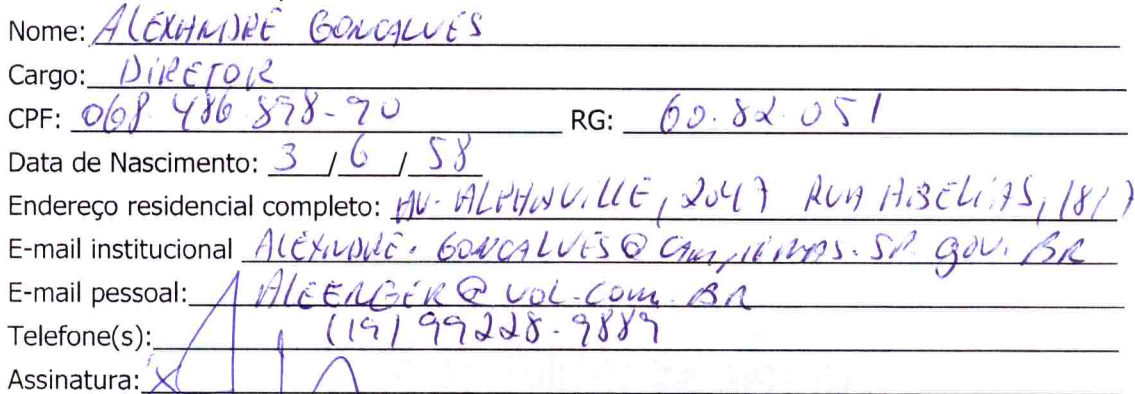 Nome: ALEXANDRE GONCALVES
Cargo: DIRETOR
CPF: 068 486 898-90 RG: 60.82.051
Data de Nascimento: 3 / 6 / 58
Endereço residencial completo: AV. ALPHAVILLE, 2047 RUA ABELIAS, 1817
E-mail institucional ALEXANDRE.GONCALVES@CAMPINAS.SP.GOV.BR
E-mail pessoal: ALEERGER@UOL.COM.BR
Telefone(s): (19) 99228-9889
Assinatura: